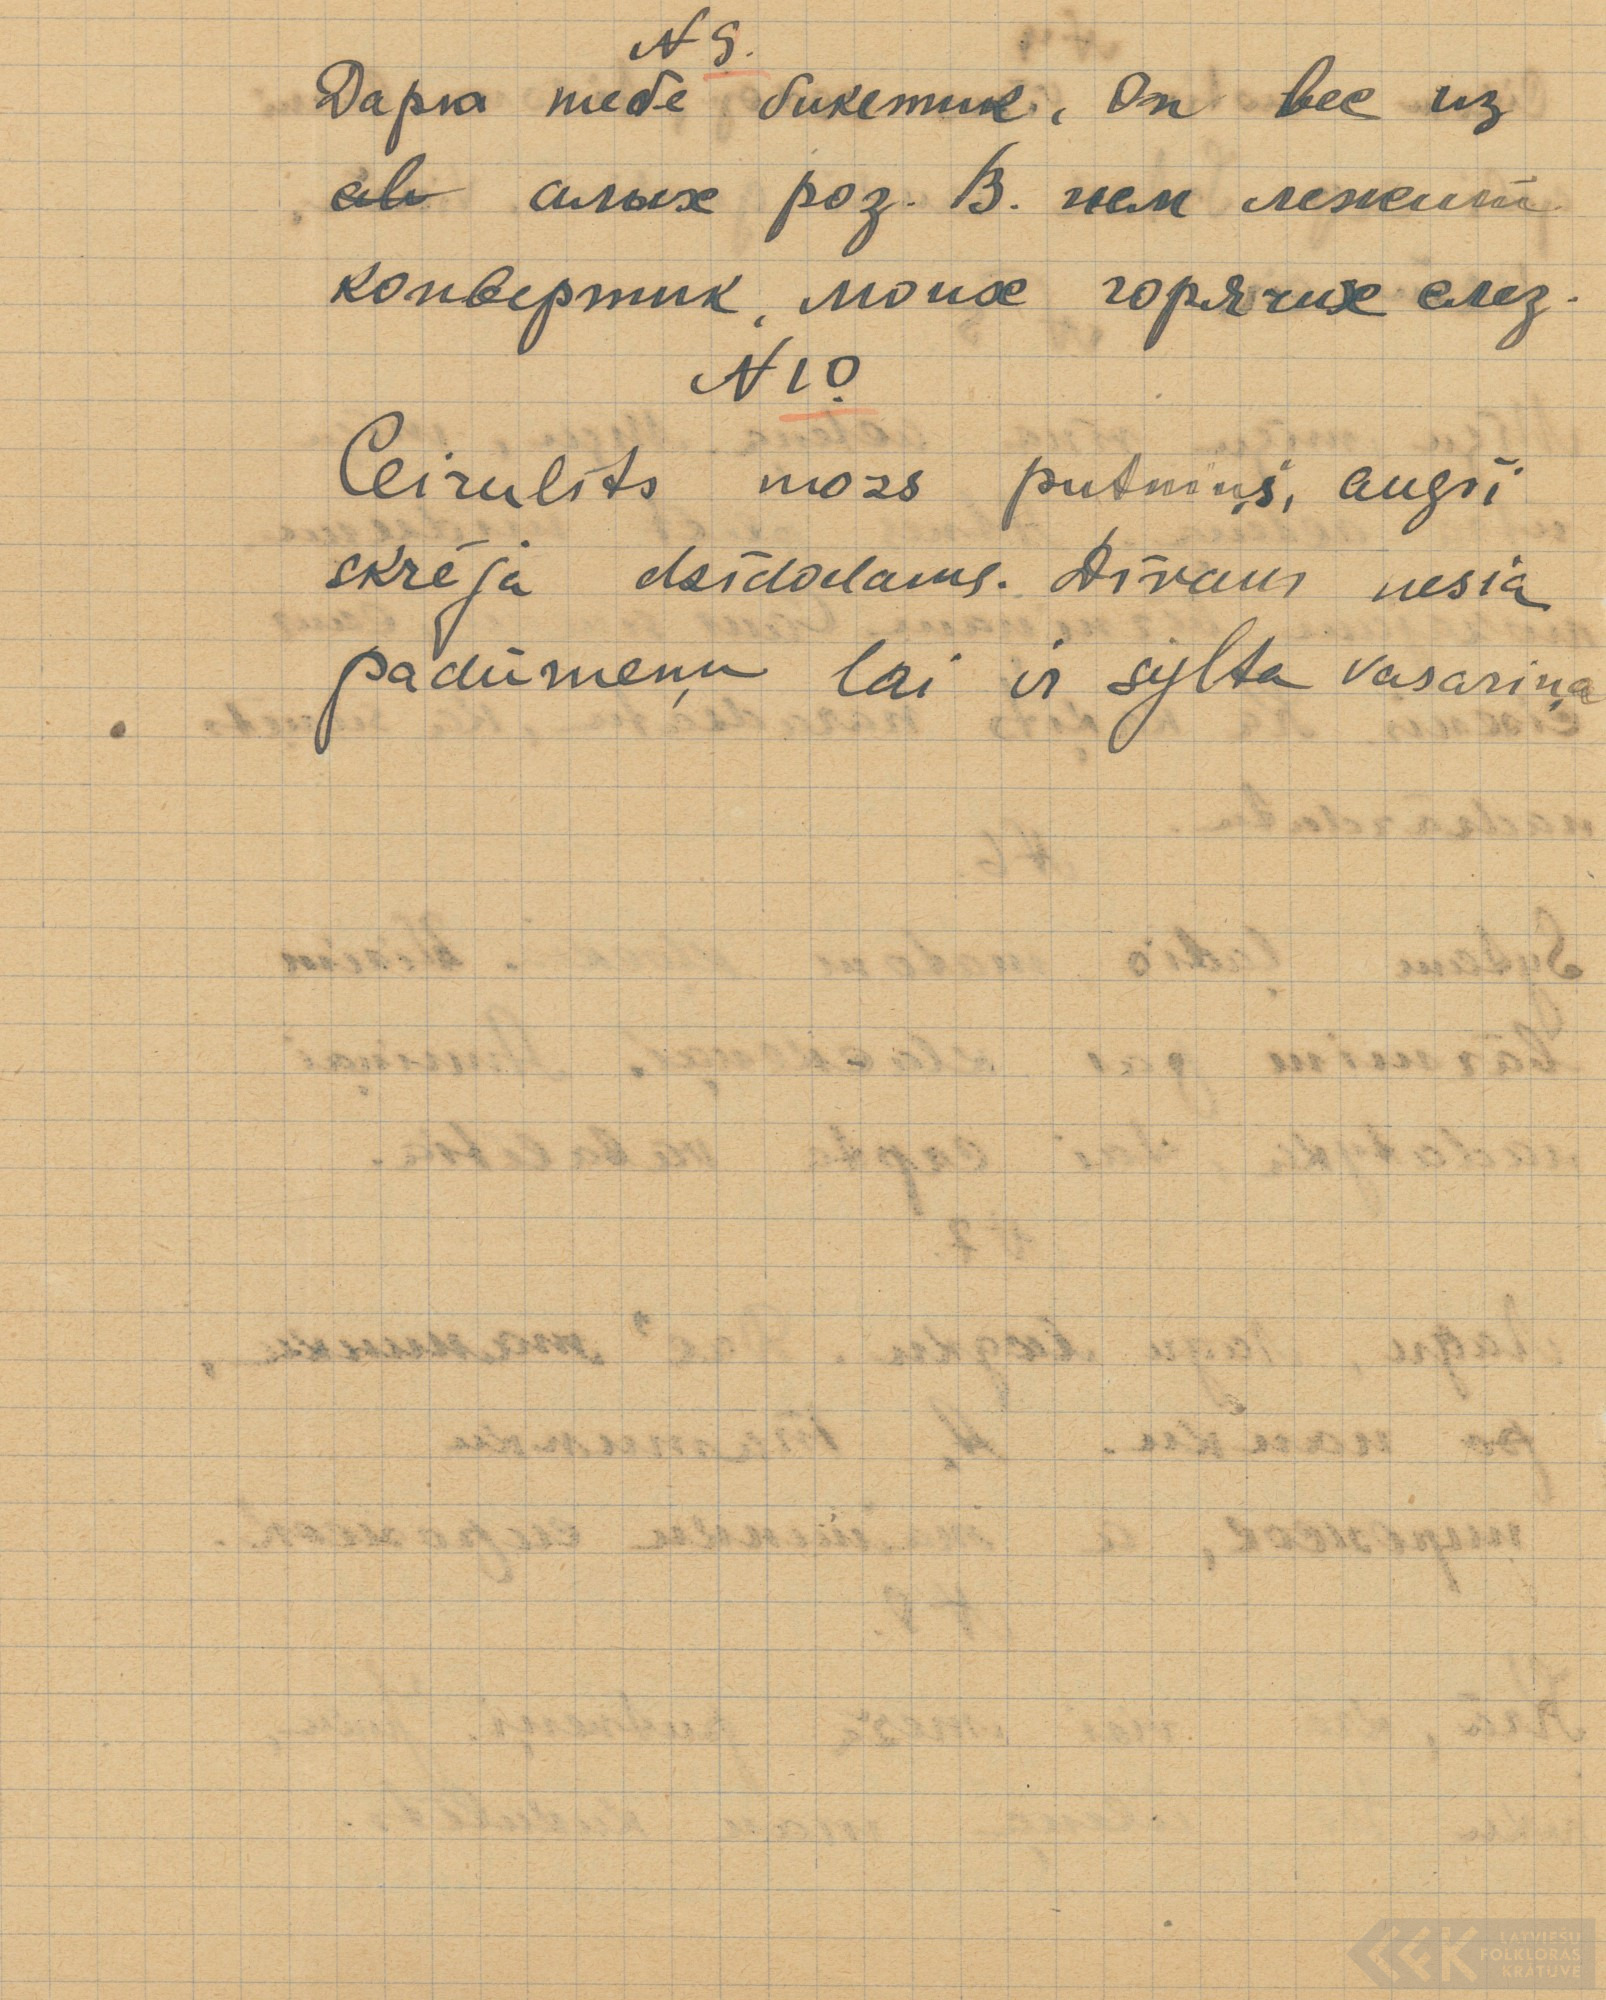 N 9.
Дарю тебе бикетик, Он вес из
ab алых роз. В. нем лежит
конвертик, моих горячих слез.
N 10
Ceirulīts mozs putniņš, augši
skrēja dzīdodams. Dīvam nesia
padūmeņu lai ir sylta vasariņa
LATVIEŠU
FOLKLORAS
KRĀTUVE